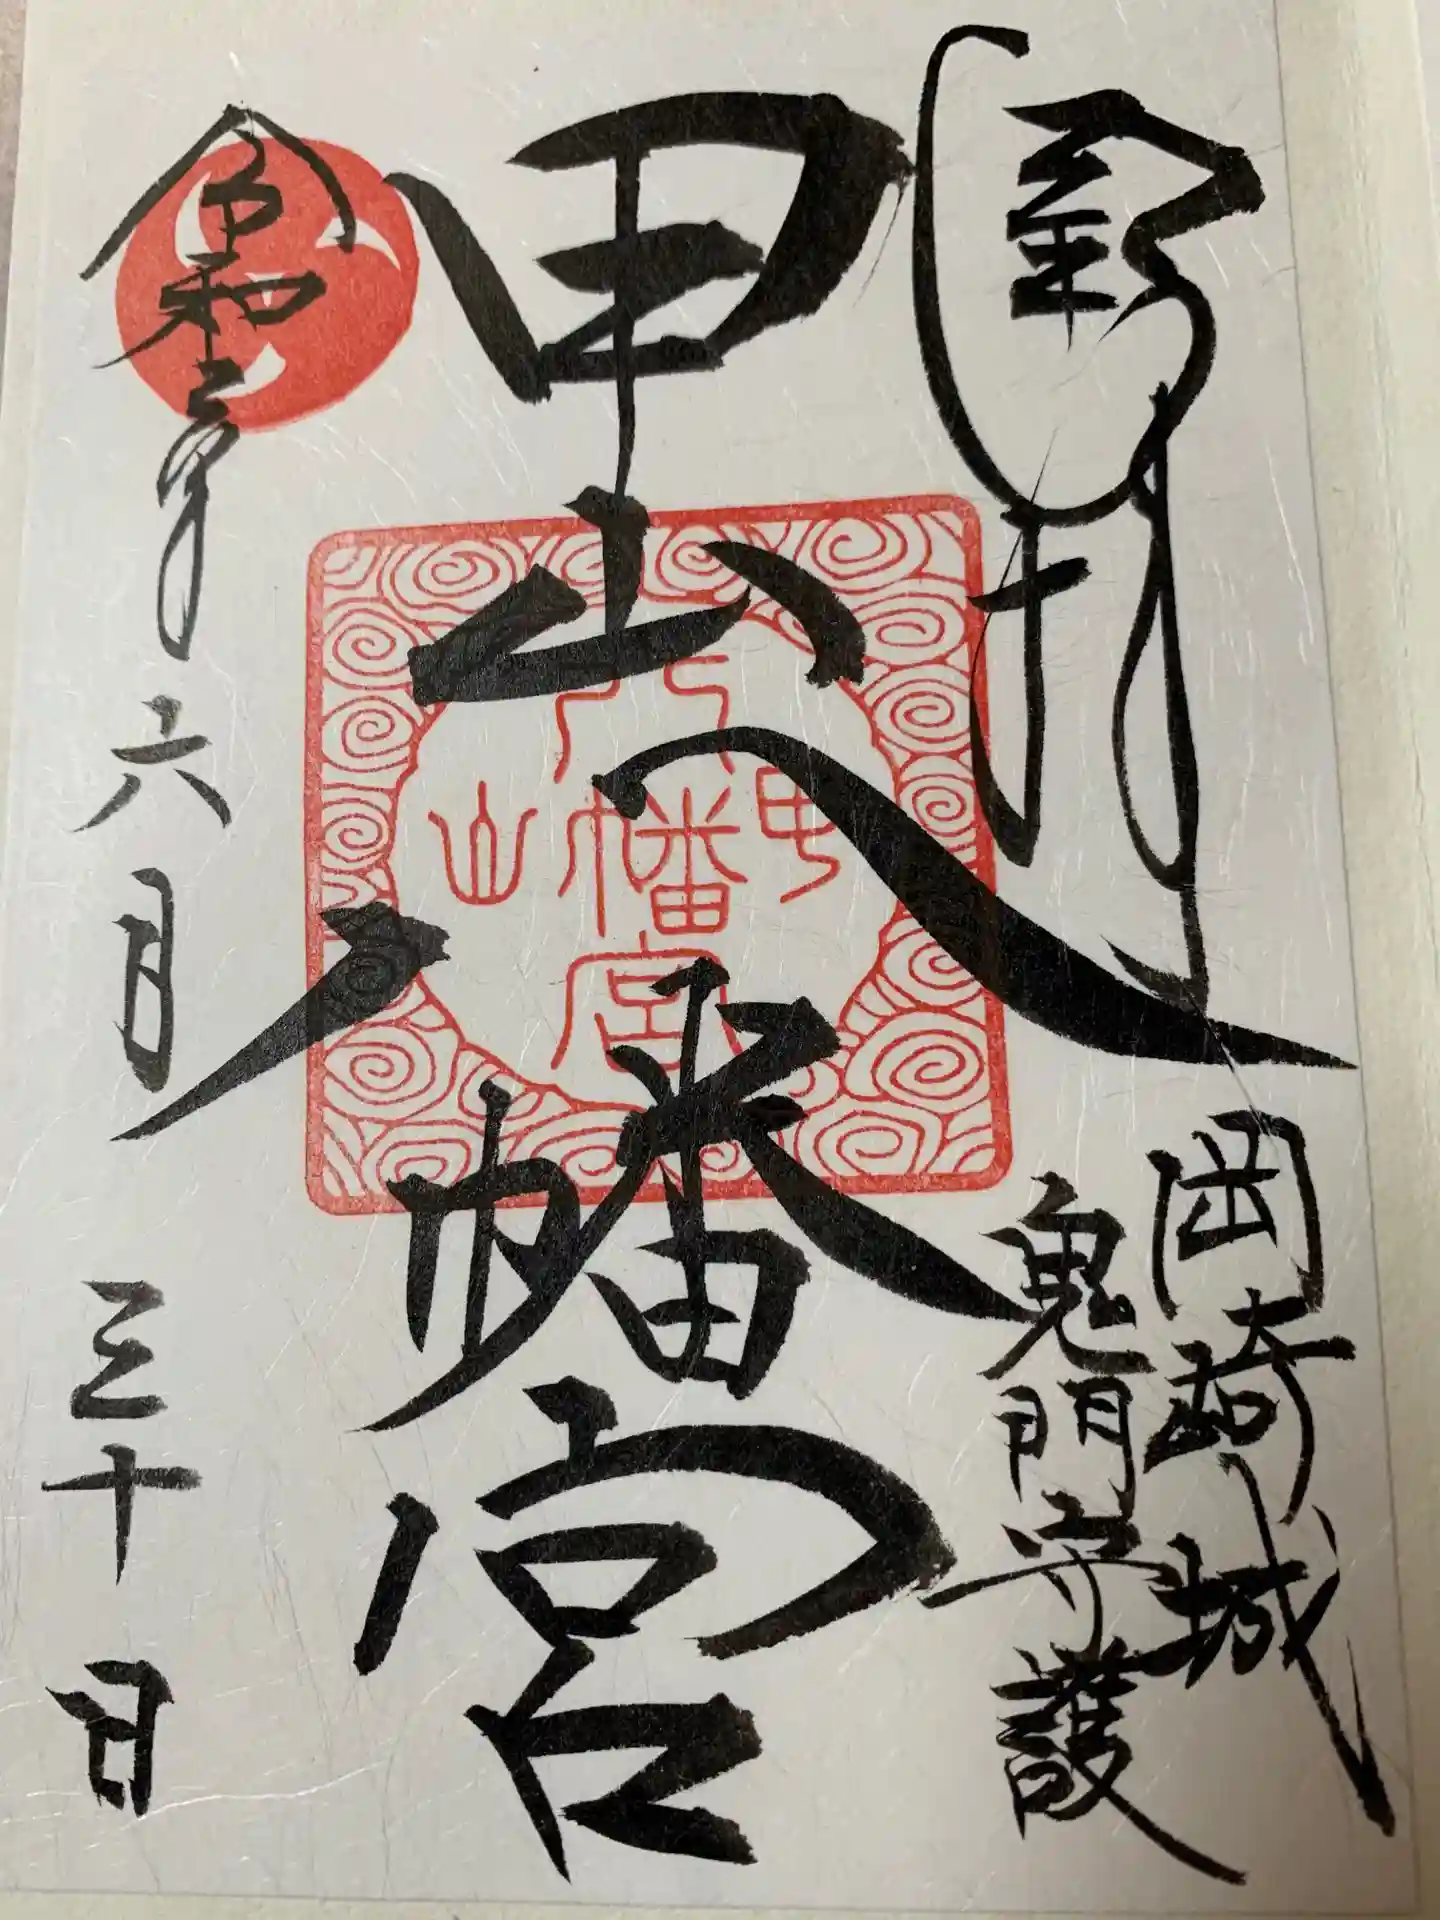 奉拝
岡崎城
鬼門守護
甲山八幡宮
甲山
八幡宮
令和三年六月三十日